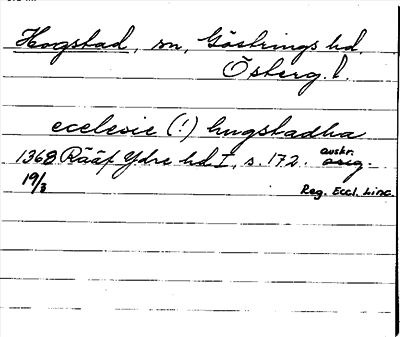 Hogstad, sn, Göstrings hd.
Österg. l.
ecclesie (!) hugstadha
1368 Rääf Ydre hd I, s. 172. avskr. orig.
19/3 Reg. Eccl. Linc.